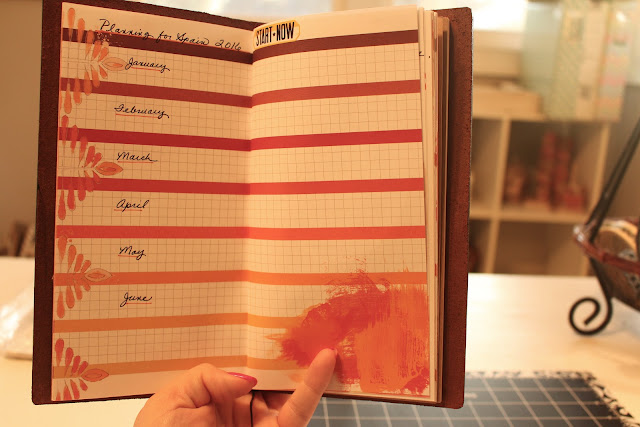 Planning for Spain 2016
START•NOW
January
February
March
April
May
June